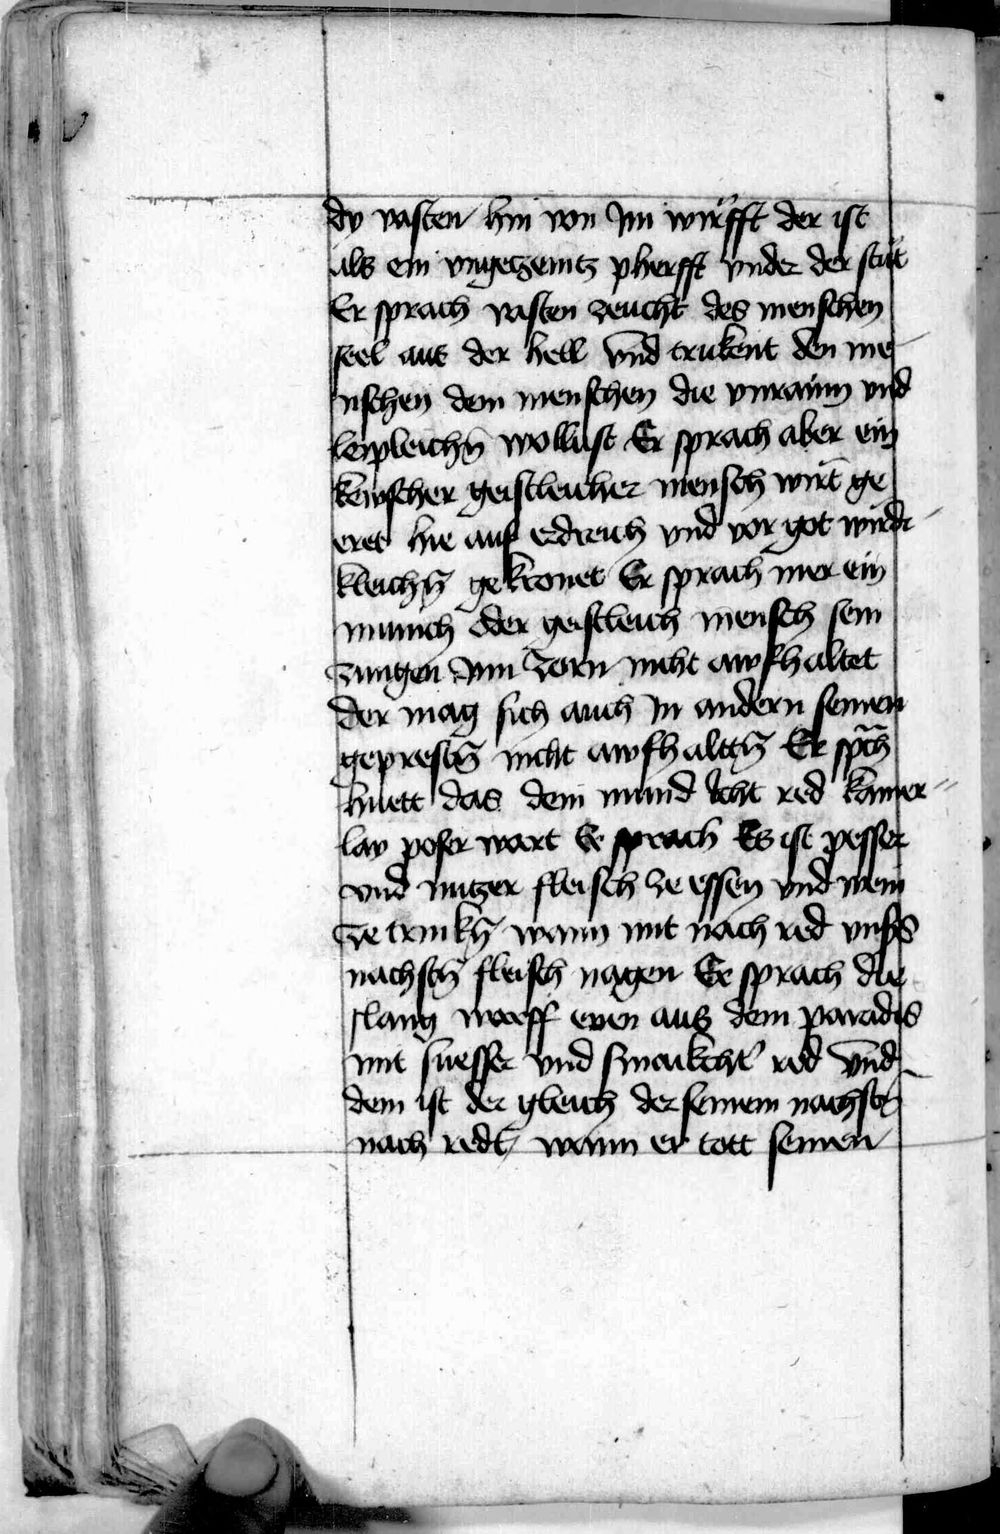 dy vasten hin von Im wirfft der ist
als ein vngeczemtz pherfft vnder der stůt
Er sprach vasten zeucht des menschen
seel aus der hell vnd trukent den me
nschen dem menschen die vnrainn vnd
leipleichn̄ wollust Er sprach aber ein
kewscher geistleicher mensch wirt ge
eret hie auf erdreich vnd vor got wirdi
kleichn̄ gekronet Er sprach mer ein
munich oder geistleich mensch sein
zungen Inn zorn nicht awfhaltet
der mag sich auch In andern seinen
geprestn̄ nicht awfhalttn̄ Er sprach
huett das dein mund icht red kainer
lay poser wort Er sprach Es ist pesser
vnd nutzer fleisch ze essen vnd wein
ze trinkn̄ wann mit nach red vnsers
nachstn̄ fleisch nagen Er sprach die
slang warff even aus dem paradis
mit suesser vnd smaikchter red vnd
dem ist der gleich der seinem nachstn̄
nach redt wann er tott seinen